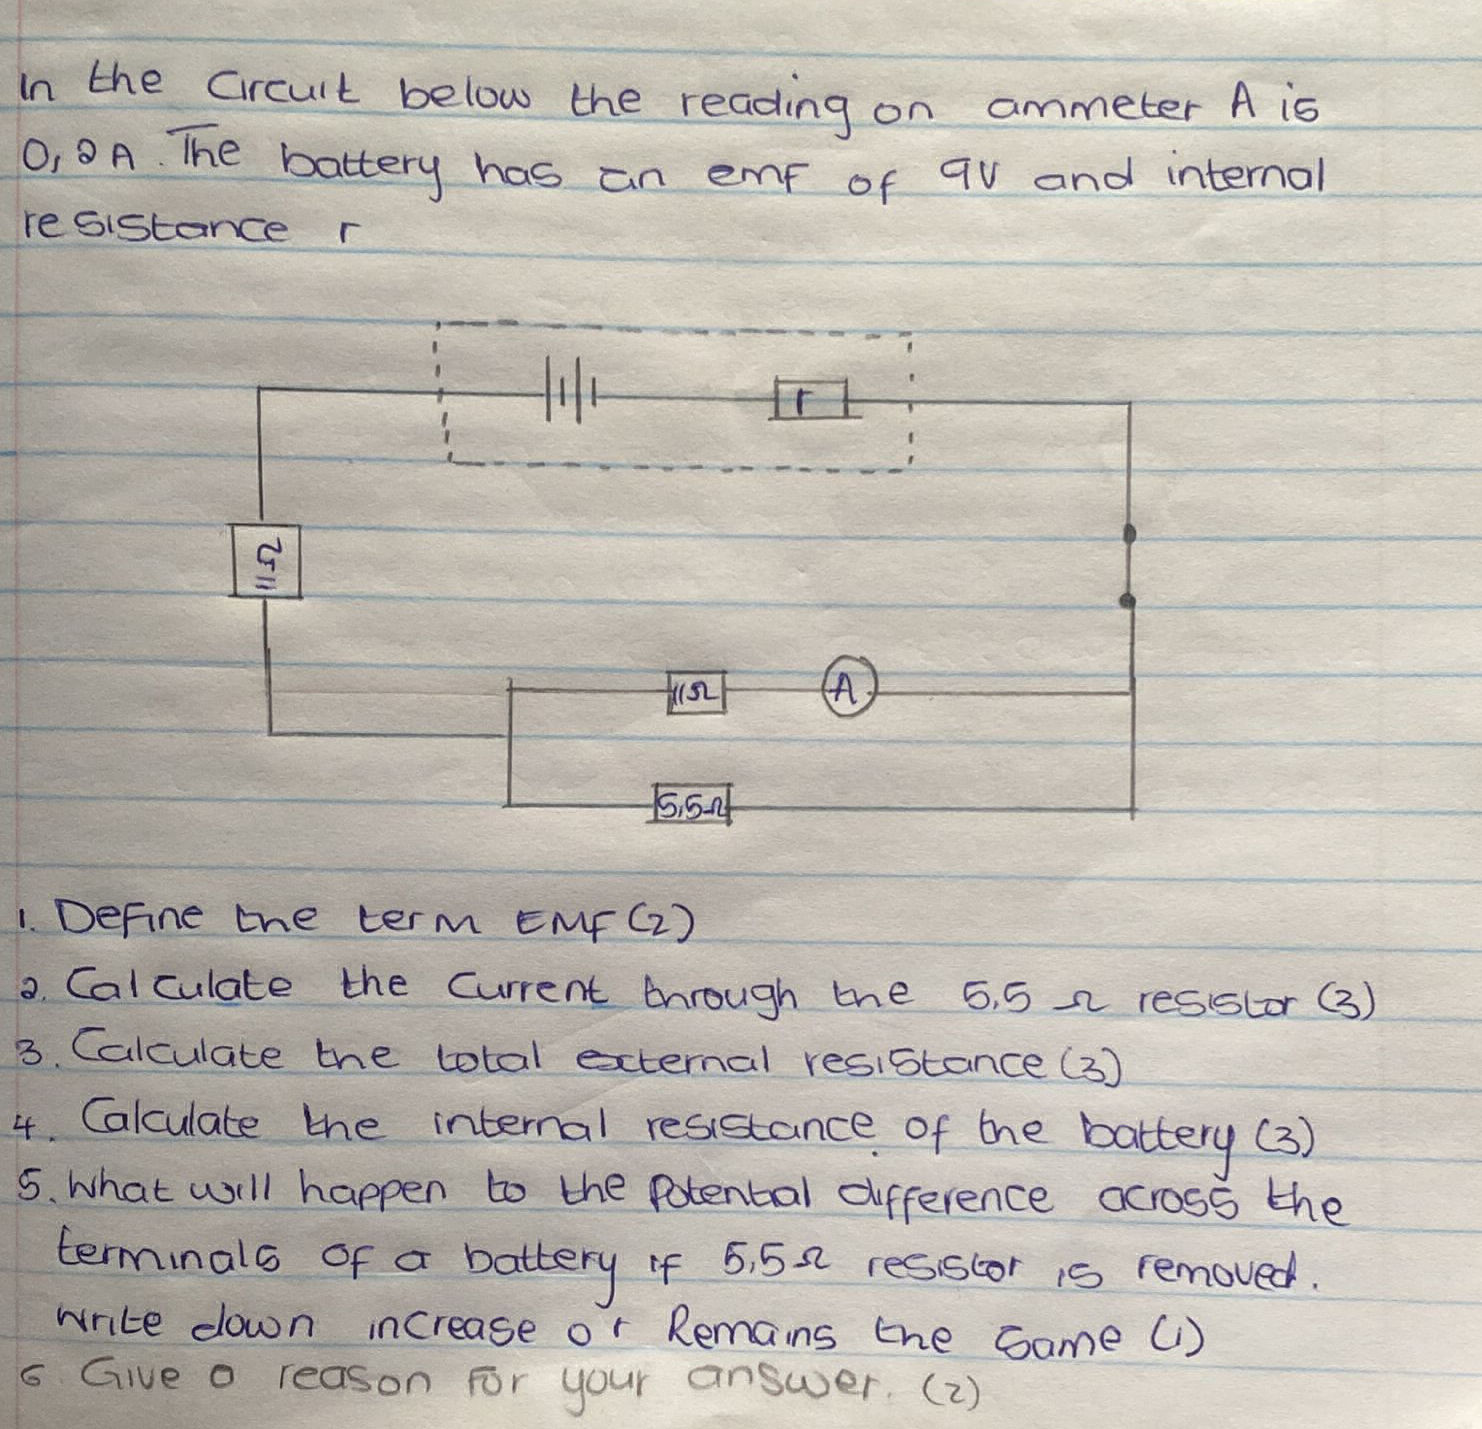 In the Circuit below the reading on ammeter A is
0,2A. The battery has an emf of 9V and internal
resistance r
r
11Ω
11Ω
A
5,5Ω
1. Define the term EMF (2)
2. Calculate the Current through the 5,5 Ω resistor (3)
3. Calculate the total external resistance (3)
4. Calculate the internal resistance of the battery (3)
5. What will happen to the Potential difference across the
terminals of a battery if 5,5Ω resistor is removed.
Write down increase or Remains the Same (1)
6 Give a reason for your answer. (2)